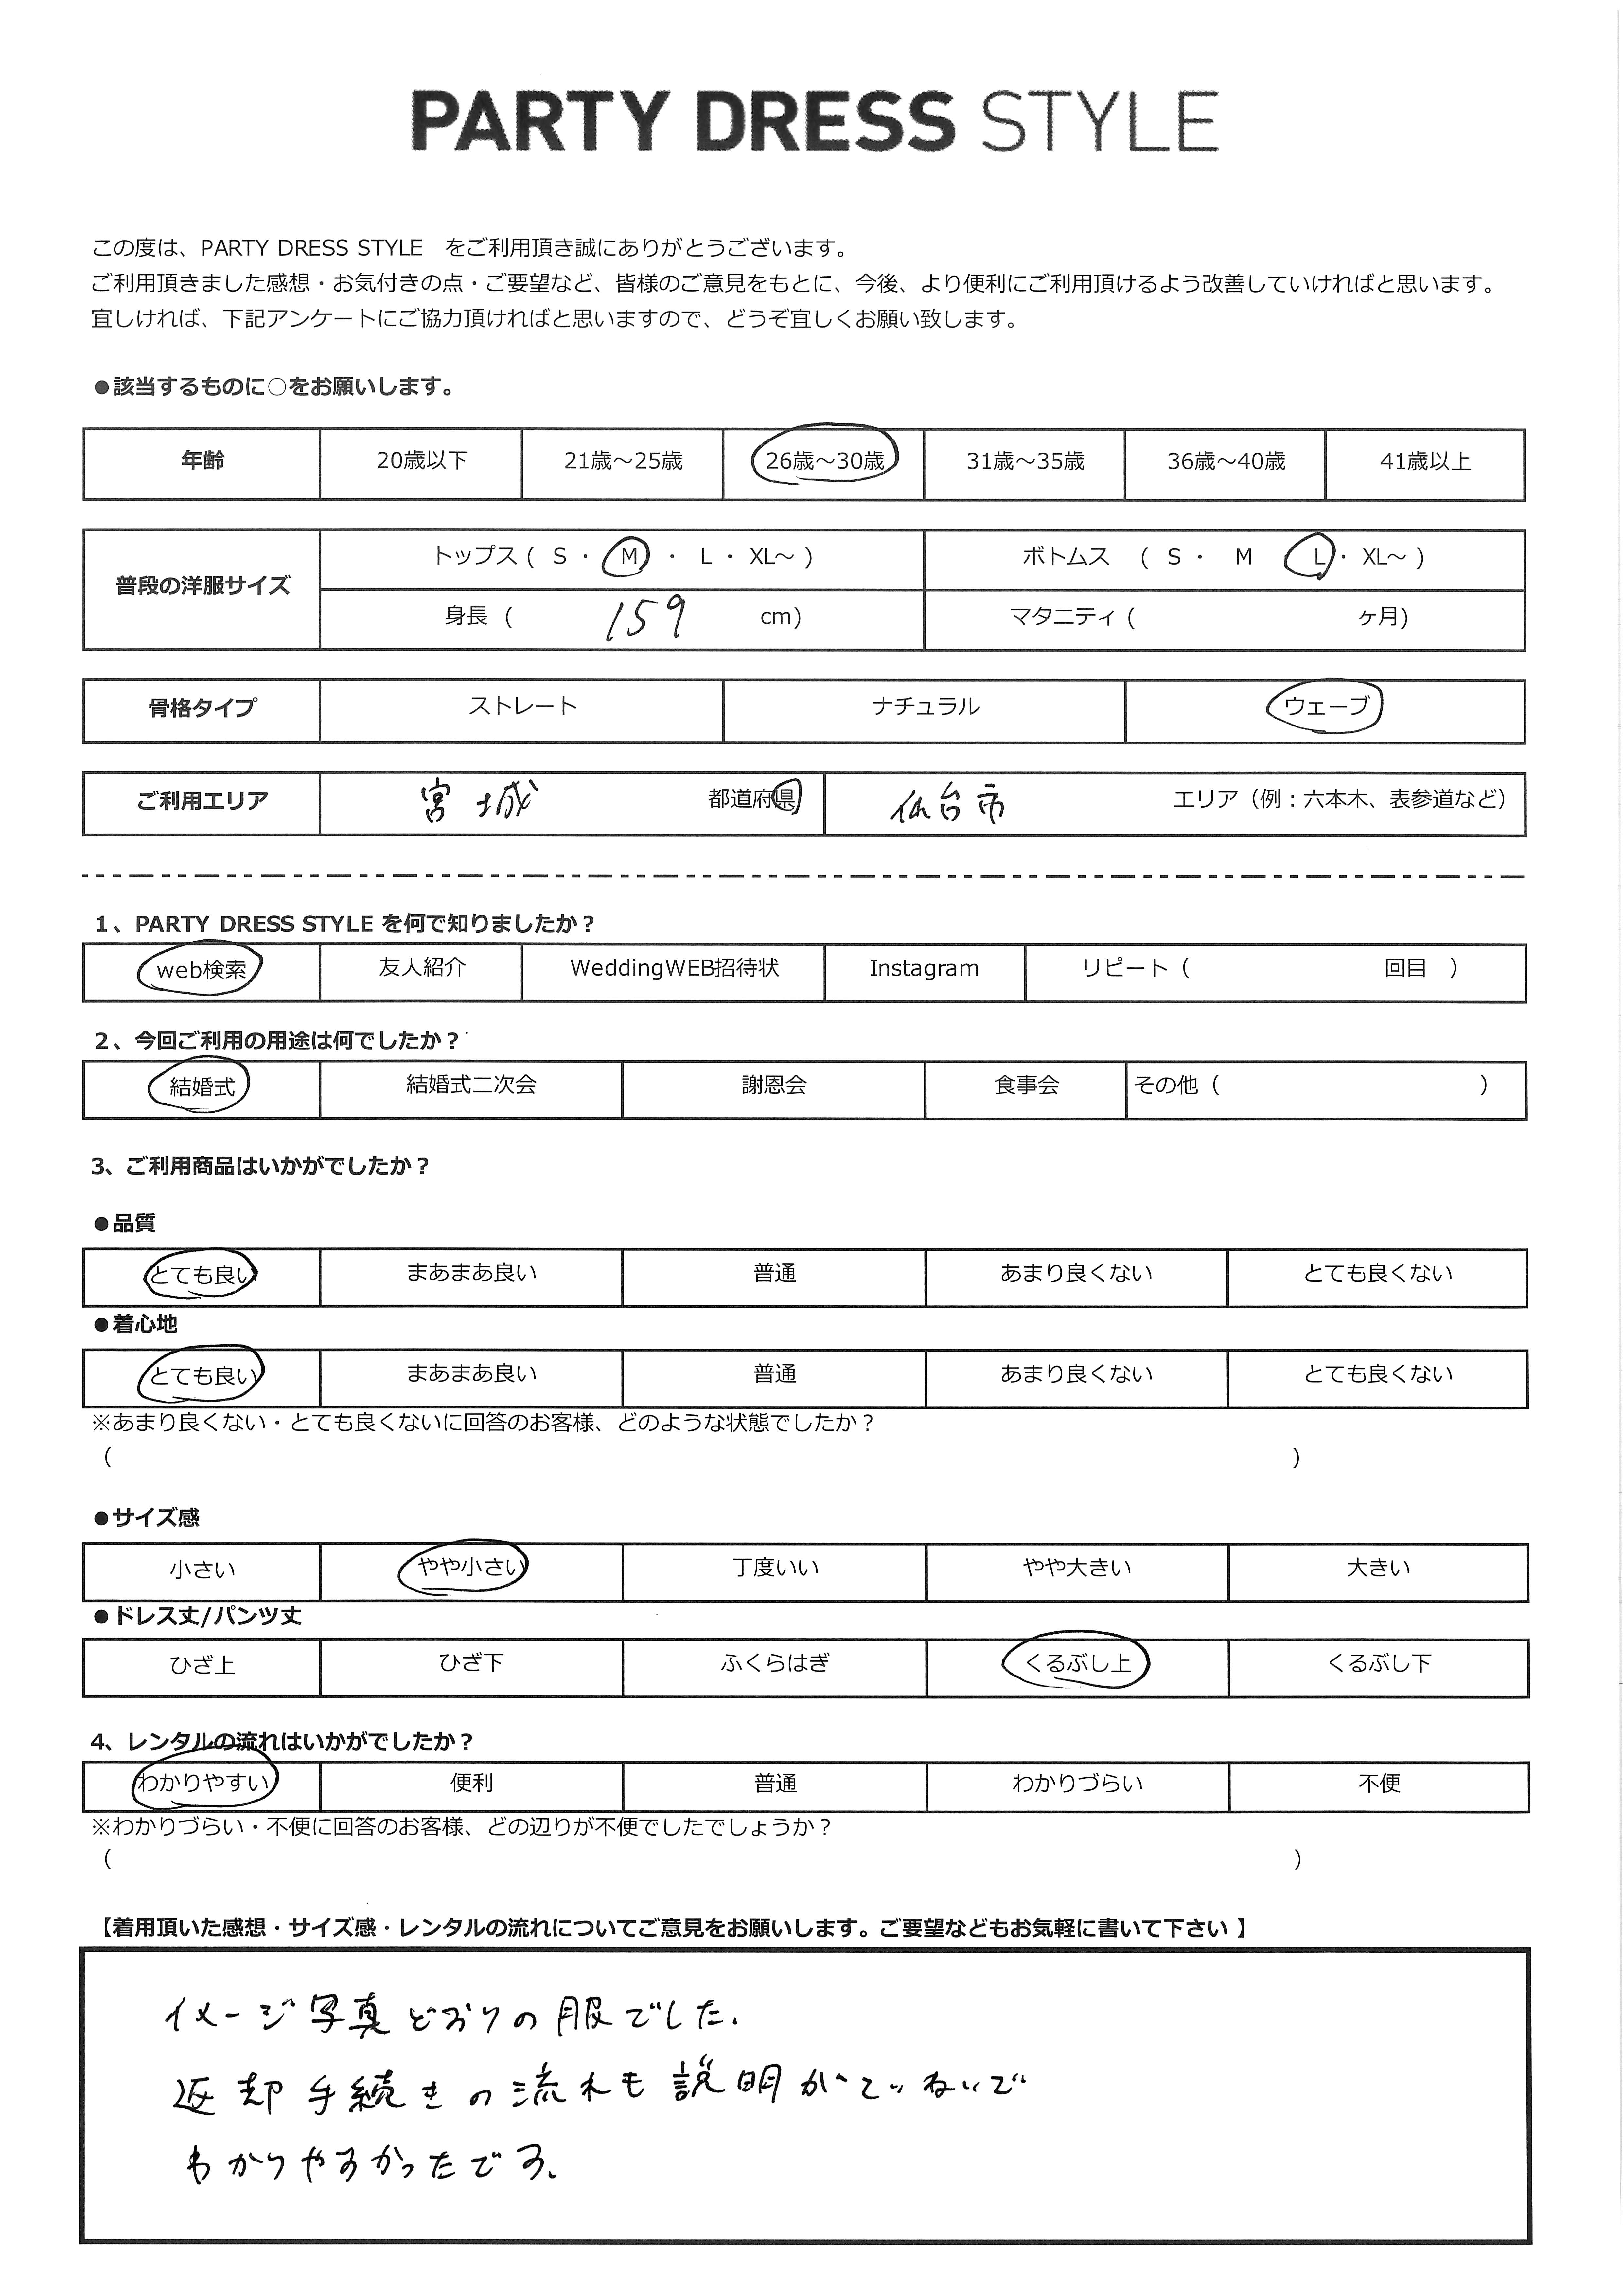 PARTY DRESS STYLE
この度は、PARTY DRESS STYLE をご利用頂き誠にありがとうございます。
ご利用頂きました感想・お気付きの点・ご要望など、皆様のご意見をもとに、今後、より便利にご利用頂けるよう改善していければと思います。
宜しければ、下記アンケートにご協力頂ければと思いますので、どうぞ宜しくお願い致します。
●該当するものに○をお願いします。
年齢 20歳以下 21歳～25歳 26歳～30歳 31歳～35歳 36歳～40歳 41歳以上
普段の洋服サイズ
トップス ( S ・ M ・ L ・ XL～ ) ボトムス ( S ・ M L ・ XL～ )
身長 ( 159 cm) マタニティ ( ヶ月)
骨格タイプ ストレート ナチュラル ウェーブ
ご利用エリア 宮城 都道府県 仙台市 エリア（例：六本木、表参道など）
1、PARTY DRESS STYLE を何で知りましたか？
web検索 友人紹介 WeddingWEB招待状 Instagram リピート（ 回目 ）
2、今回ご利用の用途は何でしたか？
結婚式 結婚式二次会 謝恩会 食事会 その他（ ）
3、ご利用商品はいかがでしたか？
●品質
とても良い まあまあ良い 普通 あまり良くない とても良くない
●着心地
とても良い まあまあ良い 普通 あまり良くない とても良くない
※あまり良くない・とても良くないに回答のお客様、どのような状態でしたか？
（ ）
●サイズ感
小さい やや小さい 丁度いい やや大きい 大きい
●ドレス丈/パンツ丈
ひざ上 ひざ下 ふくらはぎ くるぶし上 くるぶし下
4、レンタルの流れはいかがでしたか？
わかりやすい 便利 普通 わかりづらい 不便
※わかりづらい・不便に回答のお客様、どの辺りが不便でしたでしょうか？
（ ）
【着用頂いた感想・サイズ感・レンタルの流れについてご意見をお願いします。ご要望などもお気軽に書いて下さい 】
イメージ写真どおりの服でした.
返却手続きの流れも説明がていねいで
わかりやすかったです、